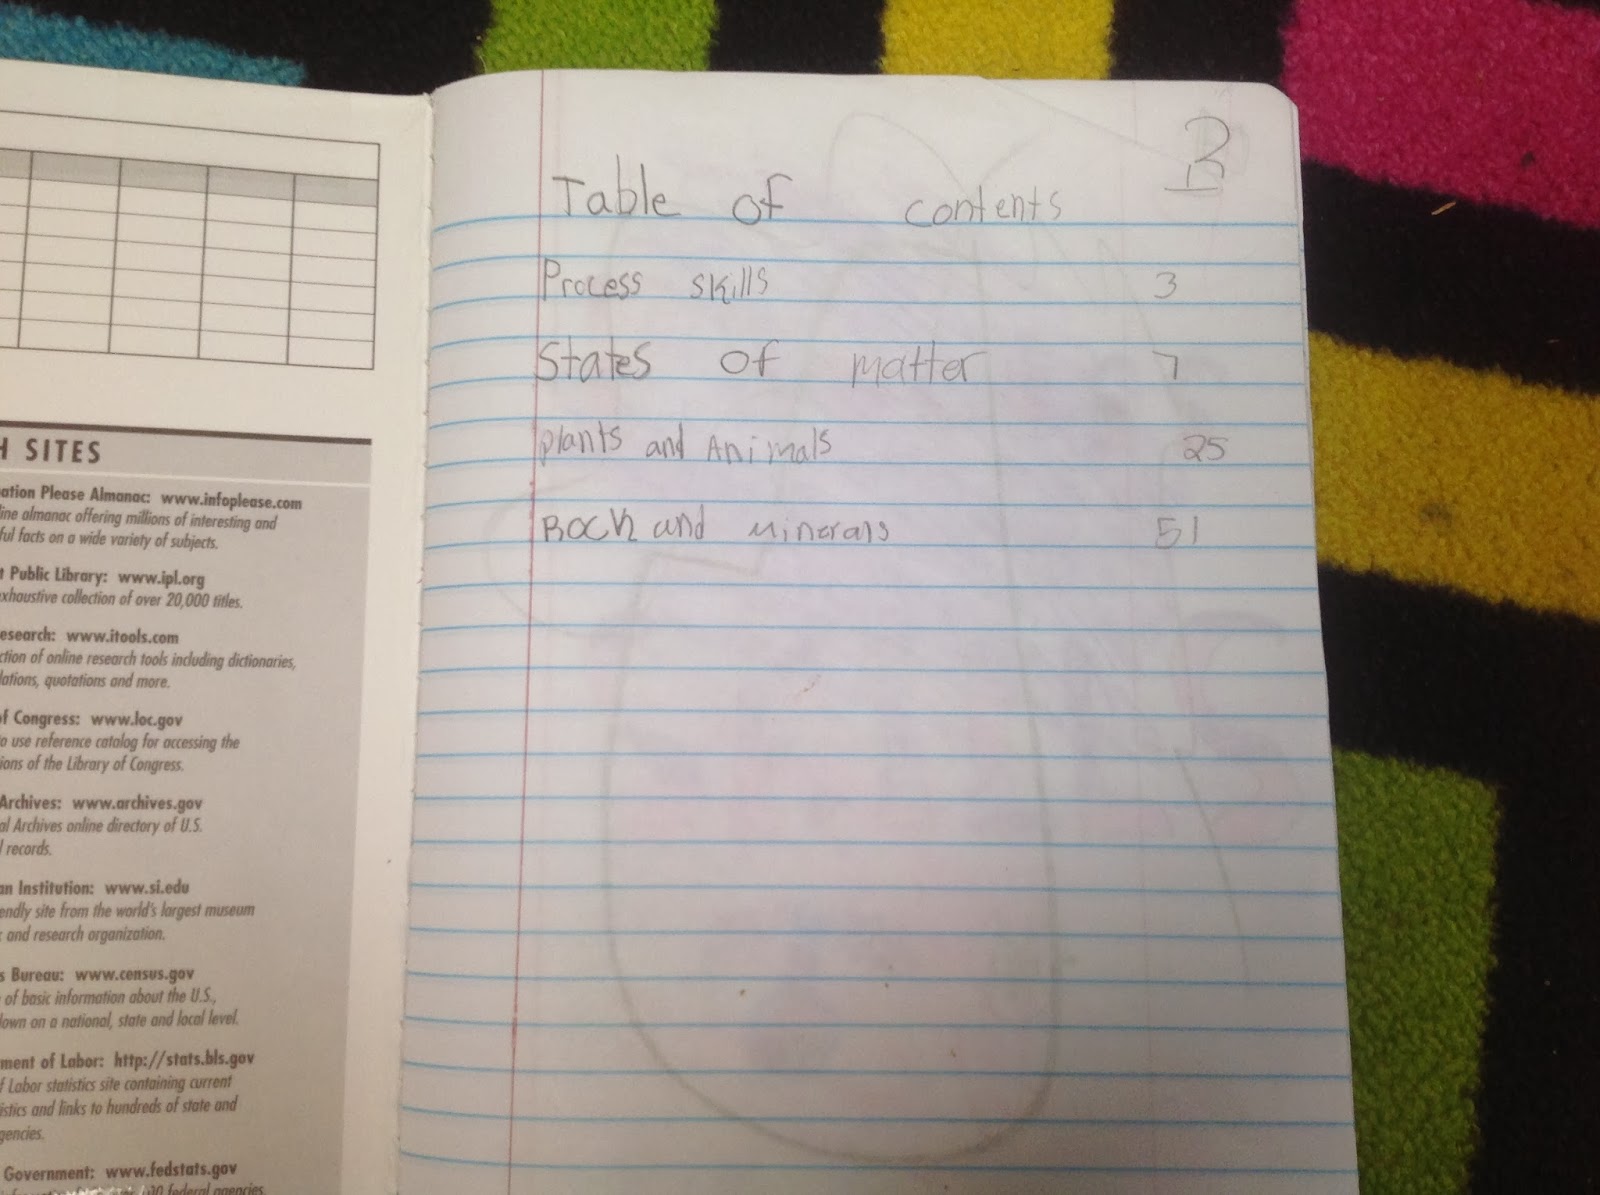 H SITES
ation Please Almanac: www.infoplease.com
line almanac offering millions of interesting and
ful facts on a wide variety of subjects.
t Public Library: www.ipl.org
xhaustive collection of over 20,000 titles.
esearch: www.itools.com
ction of online research tools including dictionaries,
lations, quotations and more.
of Congress: www.loc.gov
o use reference catalog for accessing the
ions of the Library of Congress.
Archives: www.archives.gov
al Archives online directory of U.S.
l records.
an Institution: www.si.edu
endly site from the world's largest museum
and research organization.
s Bureau: www.census.gov
of basic information about the U.S.,
down on a national, state and local level.
ment of Labor: http://stats.bls.gov
f Labor statistics site containing current
istics and links to hundreds of state and
gencies.
Government: www.fedstats.gov
federal agencies
Table of contents
Process skills 3
States of matter 7
plants and Animals 25
Rock and Minerals 51